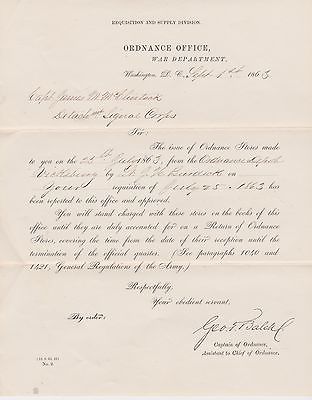 REQUISITION AND SUPPLY DIVISION.
ORDNANCE OFFICE,
WAR DEPARTMENT,
Washington, D. C., Sept 1st 1863
Capt James M McClintock
Detachmt Signal Corps
Sir:
The issue of Ordnance Stores made
to you on the 25th July 1863, from the Ordnance depot
Vicksburg by
your requisition of July 25, 1863 has been
reported to this office and approved.
You will stand charged with these stores on the books of this
office until they are duly accounted for on a Return of Ordnance
Stores, covering the time from the date of their reception until the
termination of the official quarter. (See paragraphs 1040 and
1421, General Regulations of the Army.)
Respectfully,
Your obedient servant,
By order:
Geo. T. Balch
Captain of Ordnance,
Assistant to Chief of Ordnance.
No. 2.